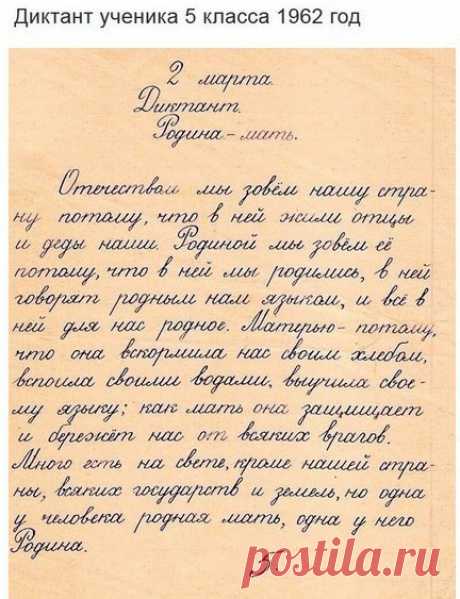 Диктант ученика 5 класса 1962 год
2 марта.
Диктант.
Родина – мать.
Отечеством мы зовём нашу стра-
ну потому, что в ней жили отцы
и деды наши. Родиной мы зовём её
потому, что в ней мы родились, в ней
говорят родным нам языком, и всё в
ней для нас родное. Матерью – потому,
что она вскормила нас своим хлебом,
вспоила своими водами, выучила свое-
му языку; как мать она защищает
и бережёт нас от всяких врагов.
Много есть на свете, кроме нашей стра-
ны, всяких государств и земель, но одна
у человека родная мать, одна у него
Родина.
5.
postila.ru